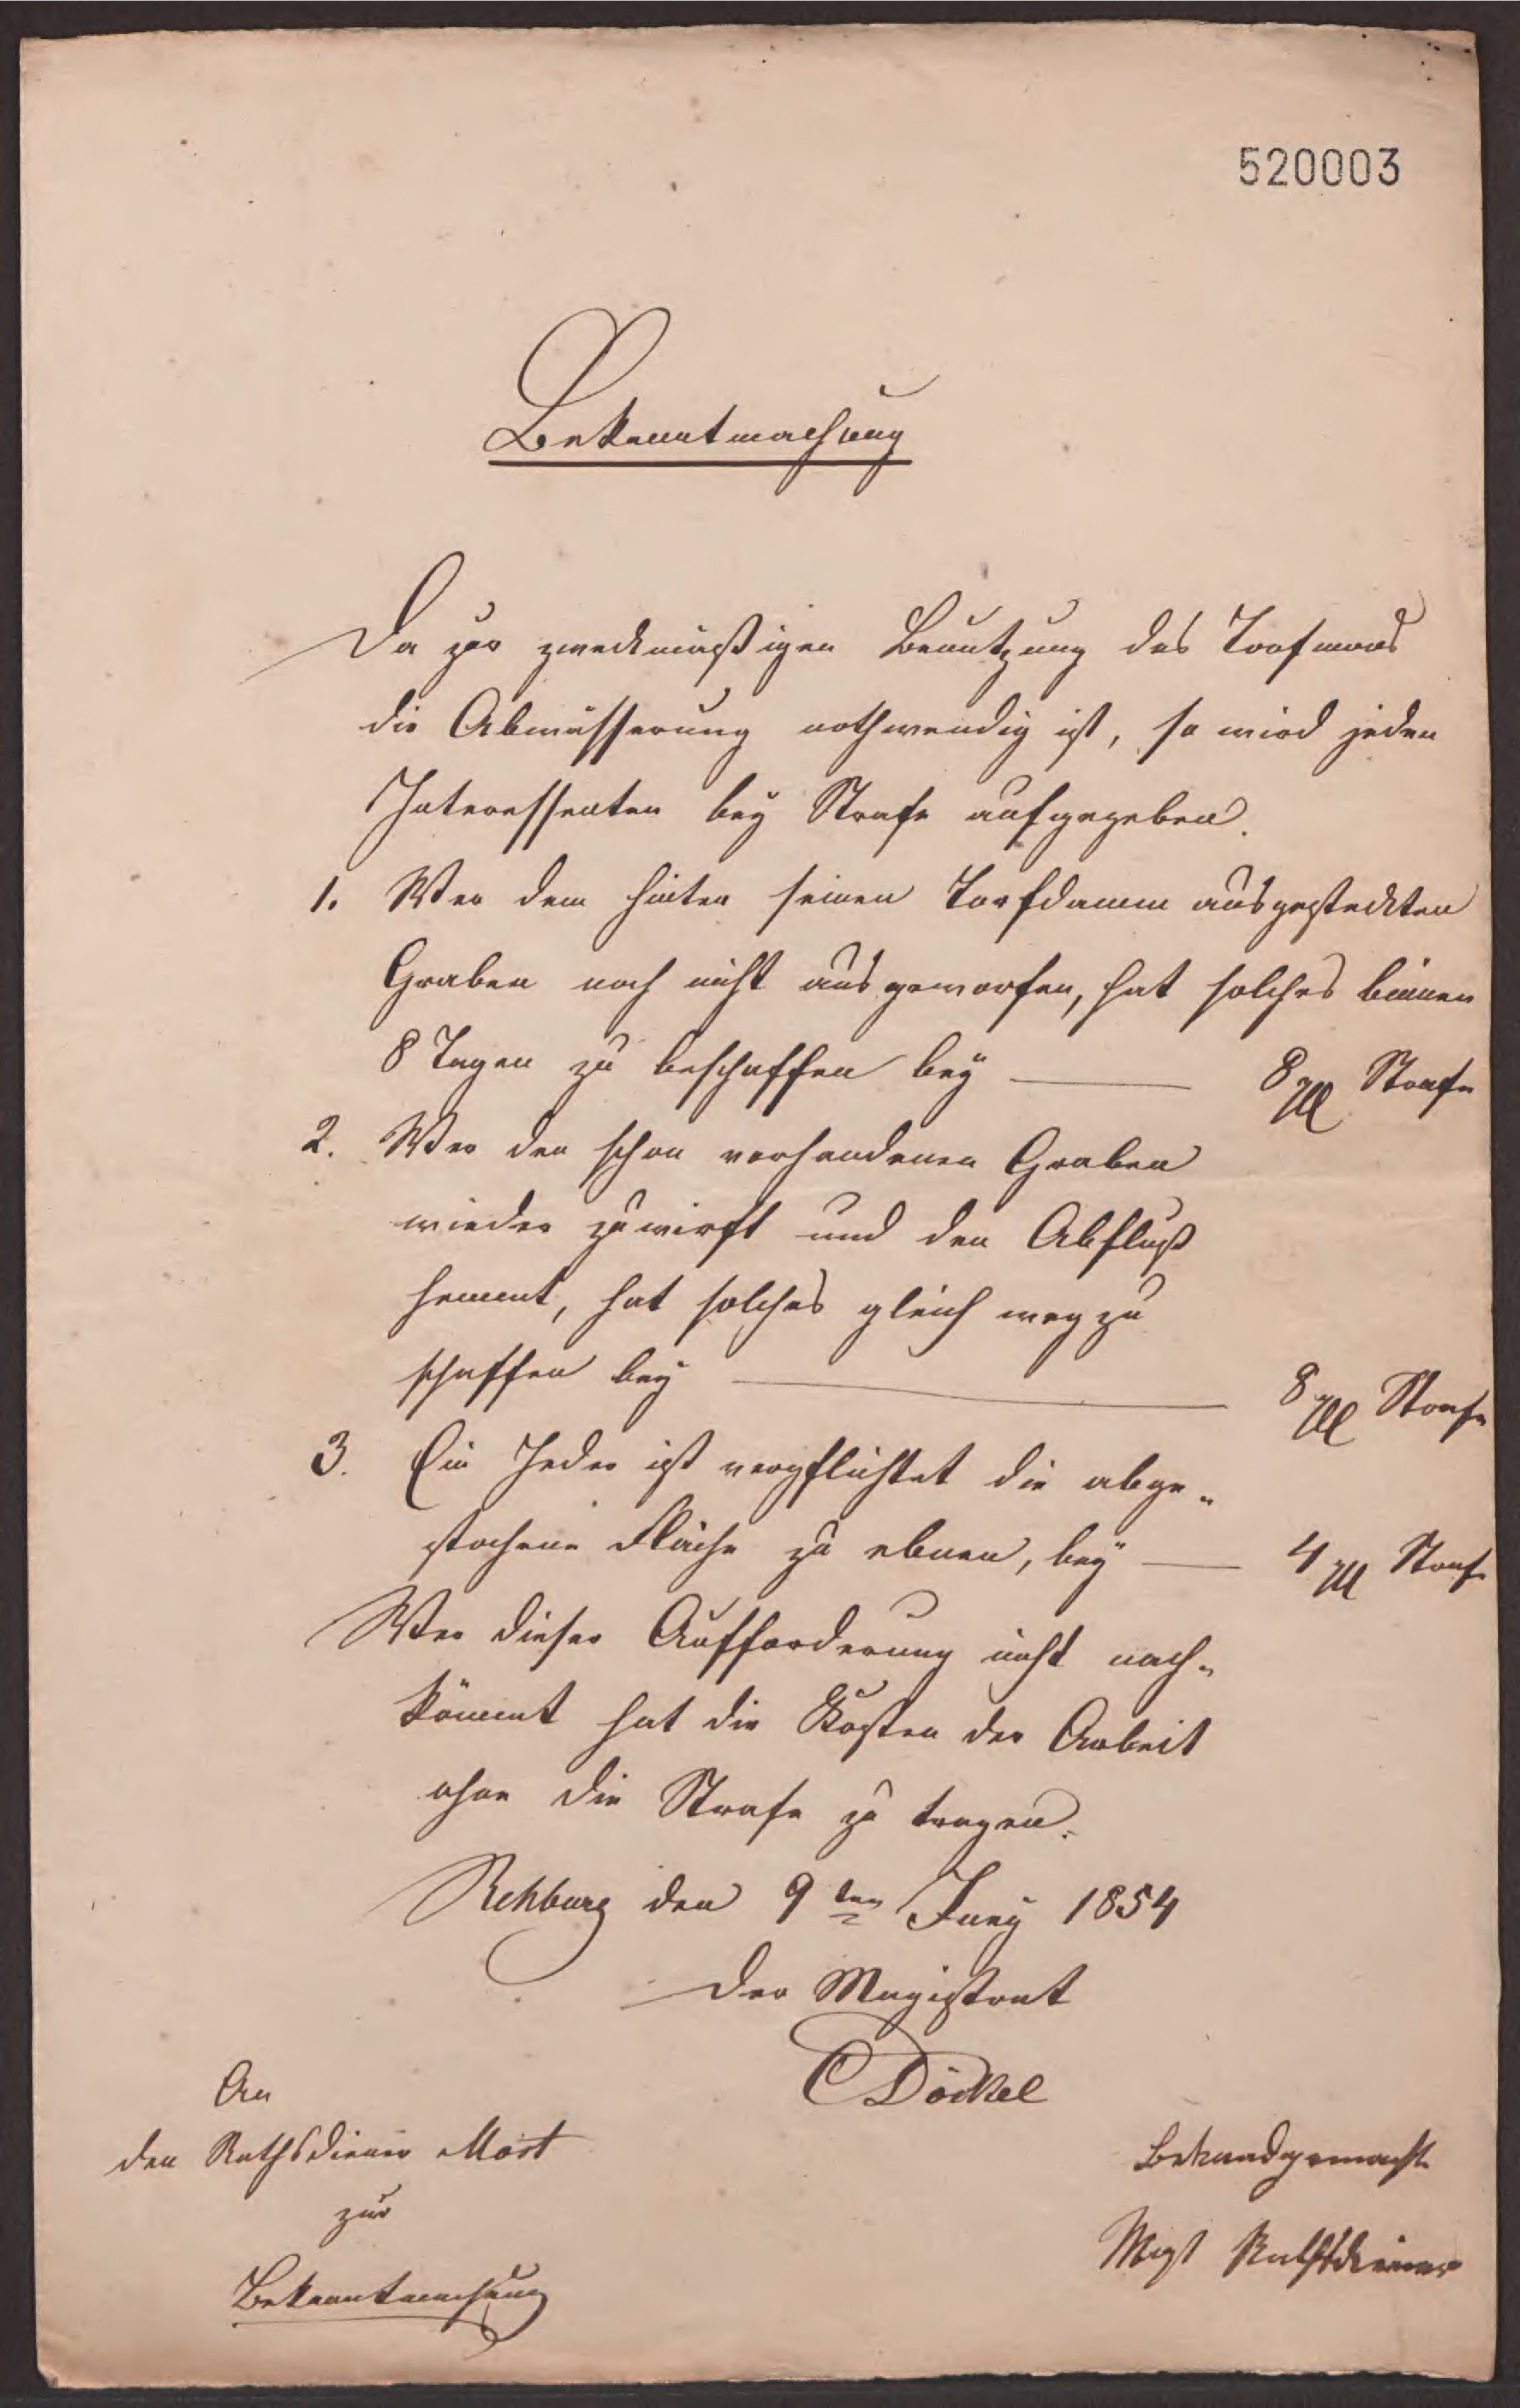 520003
Bekanntmachung
Da zur zweckmäßigen Benutzung des Torfmoors
die Abwässerung nothwendig ist, so wird jeden
Interessenten bey Strafe aufgegeben.
1. Wer dem hinter seinen Torfdamm ausgesteckten
Graben noch nicht ausgeworfen, hat solches binnen
8 Tagen zu beschaffen bey — 8 Strafe
2. Wer den schon vorhandenen Graben
wieder zuwirft und den Abfluß
hemmt, hat solches gleich weg zu
schaffen bey — 8 Strafe
3. Ein Jeder ist verpflichtet die abge-
stochene Fläche zu ebnen, bey — 4 Strafe
Wer dieser Aufforderung nicht nach-
kömmt hat die Kosten der Arbeit
ohne die Strafe zu tragen.
Rehburg den 9ten Juny 1854
Der Magistrat
Döckel
An
den Rathsdiener
zur
Bekanntmachung
Bekandgemacht
Rathsdiener